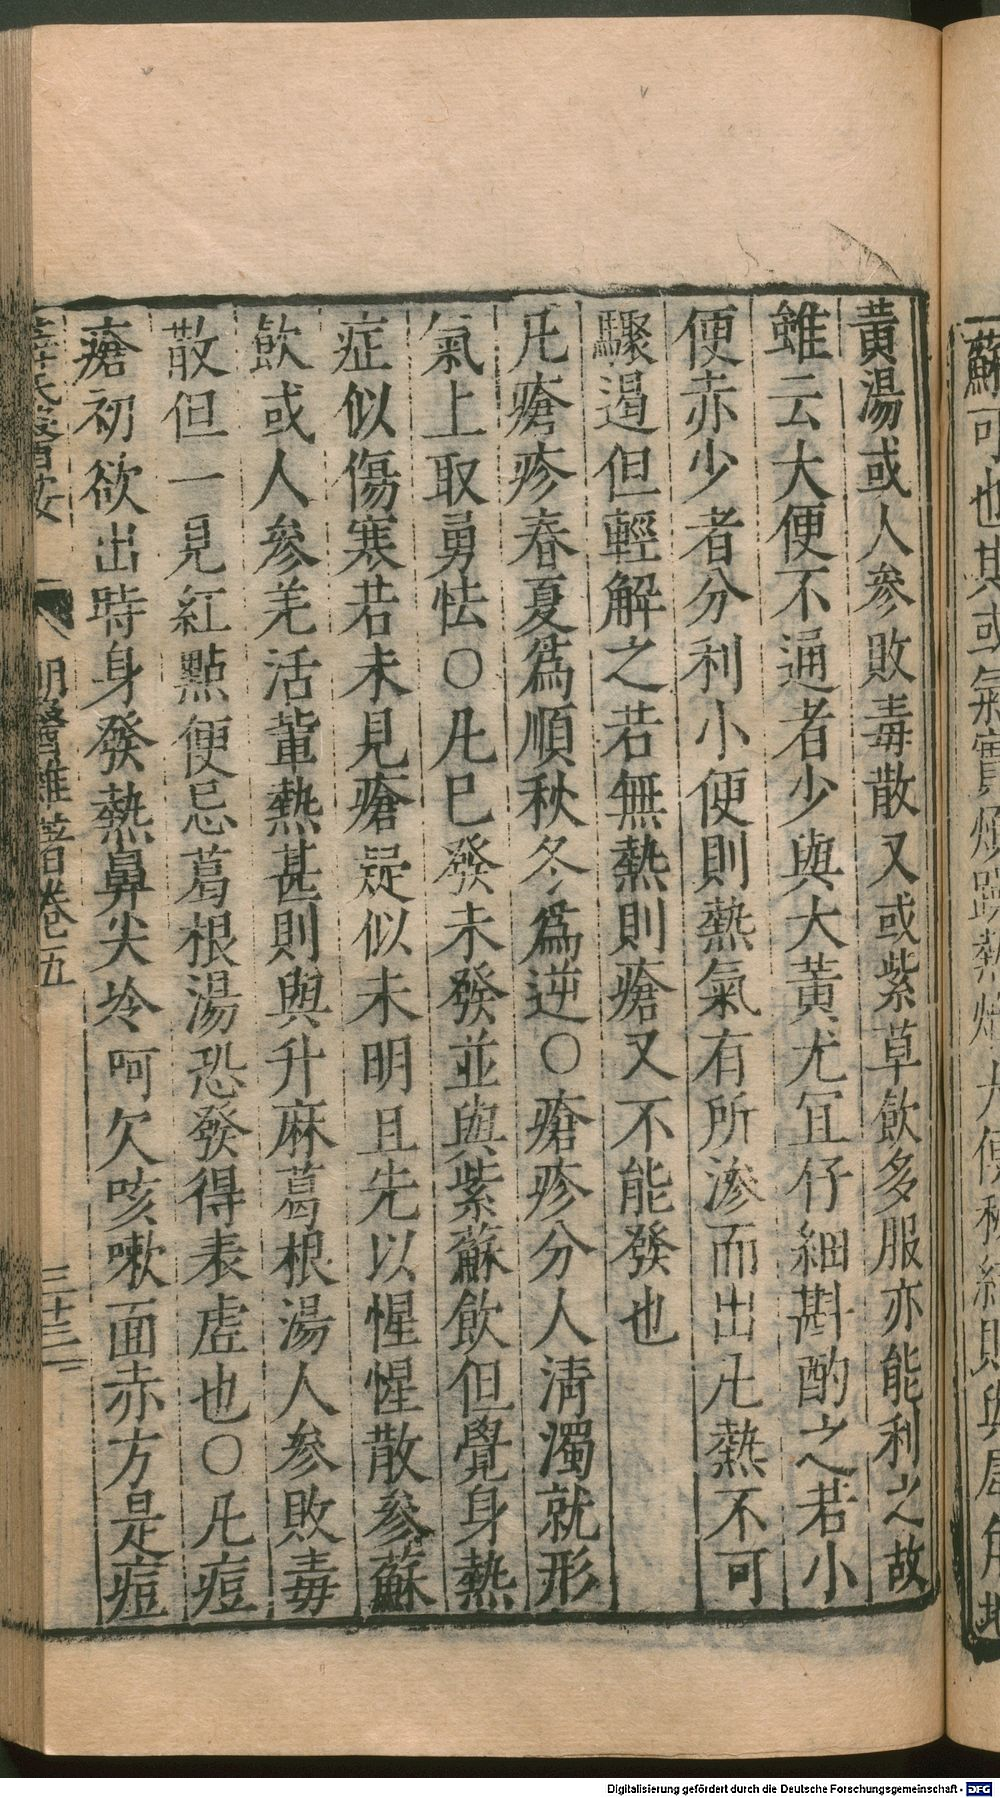 黃湯或人參敗毒散又或紫草飲多服亦能利之故
雖云大便不通者少與大黃尤宜仔細斟酌之若小
便赤少者分利小便則熱氣有所滲而出凡熱不可
驟遏但輕解之若無熱則瘡又不能發也
凡瘡疹春夏爲順秋冬爲逆○瘡疹分人清濁就形
氣上取勇怯○凡已發未發並與紫蘇飲但覺身熱
症似傷寒若未見瘡疑似未明且先以惺惺散參蘇
飲或人參羌活輩熱甚則與升麻葛根湯人參敗毒
散但一見紅點便忌葛根湯恐發得表虛也○凡痘
瘡初欲出時身發熱鼻尖冷呵欠咳嗽面赤方是痘
明醫雜著卷五
三十三
蘇可也其或氣實煩躁熱熾大便秘結則與犀角地
Digitalisierung gefördert durch die Deutsche Forschungsgemeinschaft - DFG